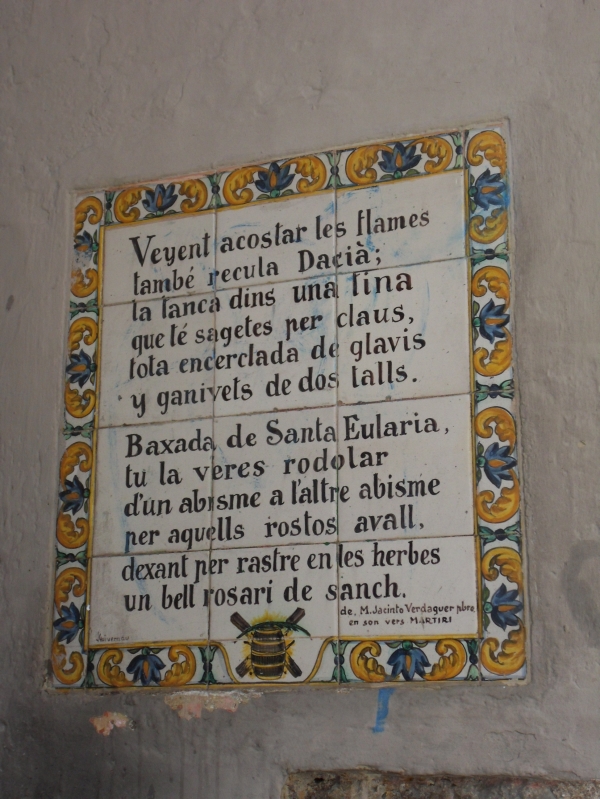 Veyent acostar les flames
també recula Dacià;
la tanca dins una tina
que té sagetes per claus,
tota encerclada de glavis
y ganivets de dos talls.
Baxada de Santa Eularia,
tu la veres rodolar
d'un abisme a l'altre abisme
per aquells rostos avall,
dexant per rastre en les herbes
un bell rosari de sanch.
de, M. Jacinto Verdaguer pbre
en son vers MARTIRI